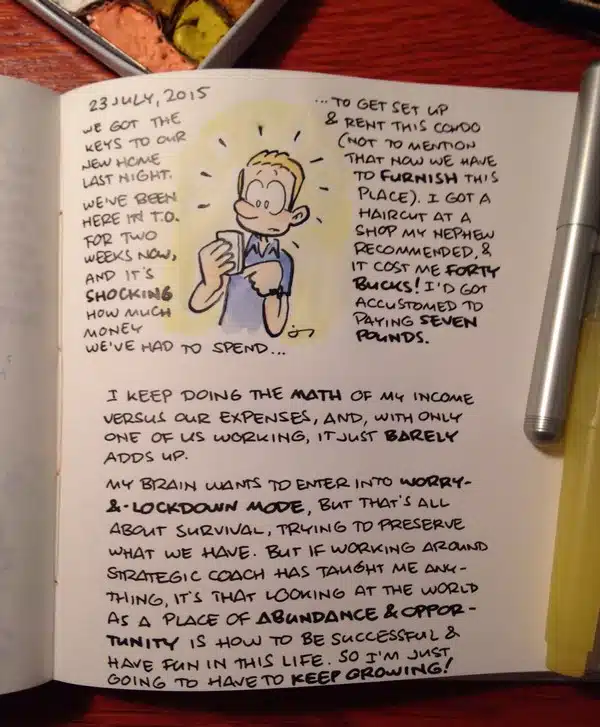 23 JULY, 2015
WE GOT THE
KEYS TO OUR
NEW HOME
LAST NIGHT.
WE'VE BEEN
HERE IN T.O.
FOR TWO
WEEKS NOW,
AND IT'S
SHOCKING
HOW MUCH
MONEY
WE'VE HAD TO SPEND...
...TO GET SET UP
& RENT THIS CONDO
(NOT TO MENTION
THAT NOW WE HAVE
TO FURNISH THIS
PLACE). I GOT A
HAIRCUT AT A
SHOP MY NEPHEW
RECOMMENDED, &
IT COST ME FORTY
BUCKS! I'D GOT
ACCUSTOMED TO
PAYING SEVEN
POUNDS.
I KEEP DOING THE MATH OF MY INCOME
VERSUS OUR EXPENSES, AND, WITH ONLY
ONE OF US WORKING, IT JUST BARELY
ADDS UP.
MY BRAIN WANTS TO ENTER INTO WORRY-
&-LOCKDOWN MODE, BUT THAT'S ALL
ABOUT SURVIVAL, TRYING TO PRESERVE
WHAT WE HAVE. BUT IF WORKING AROUND
STRATEGIC COACH HAS TAUGHT ME ANY-
THING, IT'S THAT LOOKING AT THE WORLD
AS A PLACE OF ABUNDANCE & OPPOR-
TUNITY IS HOW TO BE SUCCESSFUL &
HAVE FUN IN THIS LIFE. SO I'M JUST
GOING TO HAVE TO KEEP GROWING!